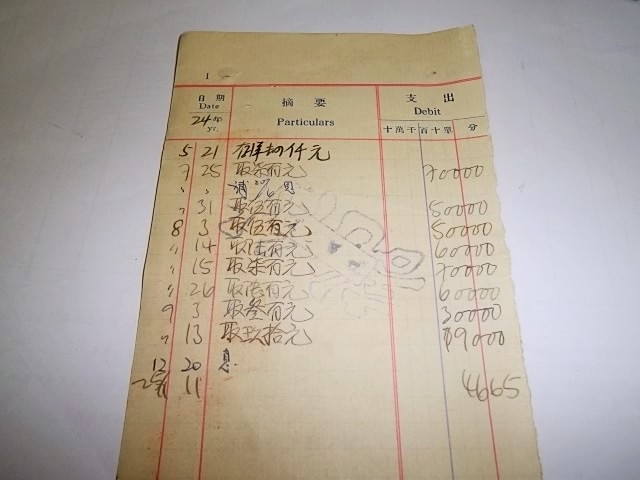 1
日期 摘要 支出
Date Particulars Debit
24年 yr. 十萬千百十單 分
5 21 仟元
7 25 取柒百元 70000
〃 〃
〃 31 取伍百元 50000
8 3 取伍百元 50000
〃 14 取陸百元 60000
〃 15 取柒百元 70000
〃 26 取陸百元 60000
9 3 取叁百元 30000
〃 13 取玖拾元 9000
12 20 息
11 4665